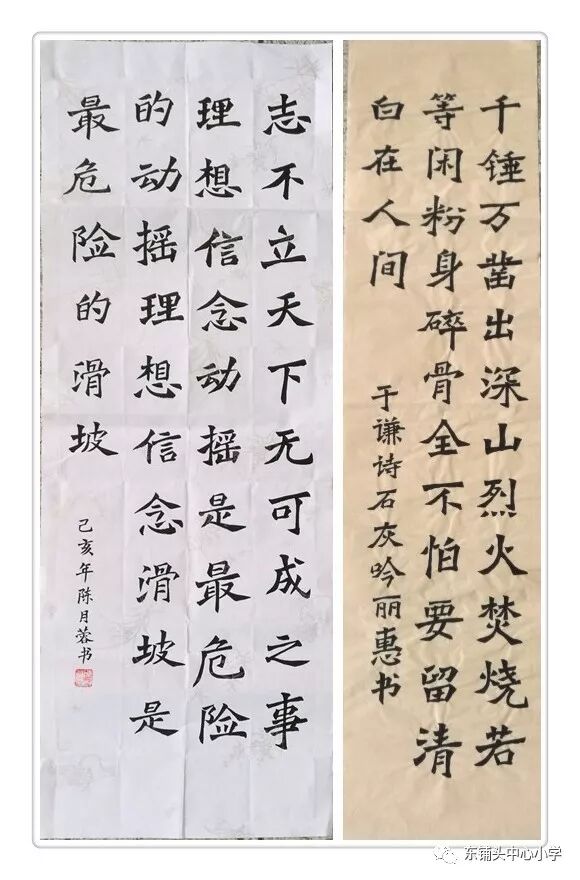 志不立天下无可成之事
理想信念动摇是最危险
的动摇理想信念滑坡是
最危险的滑坡
己亥年陈月蓉书
千锤万凿出深山烈火焚烧若
等闲粉身碎骨全不怕要留清
白在人间
于谦诗石灰吟丽惠书
东铺头中心小学